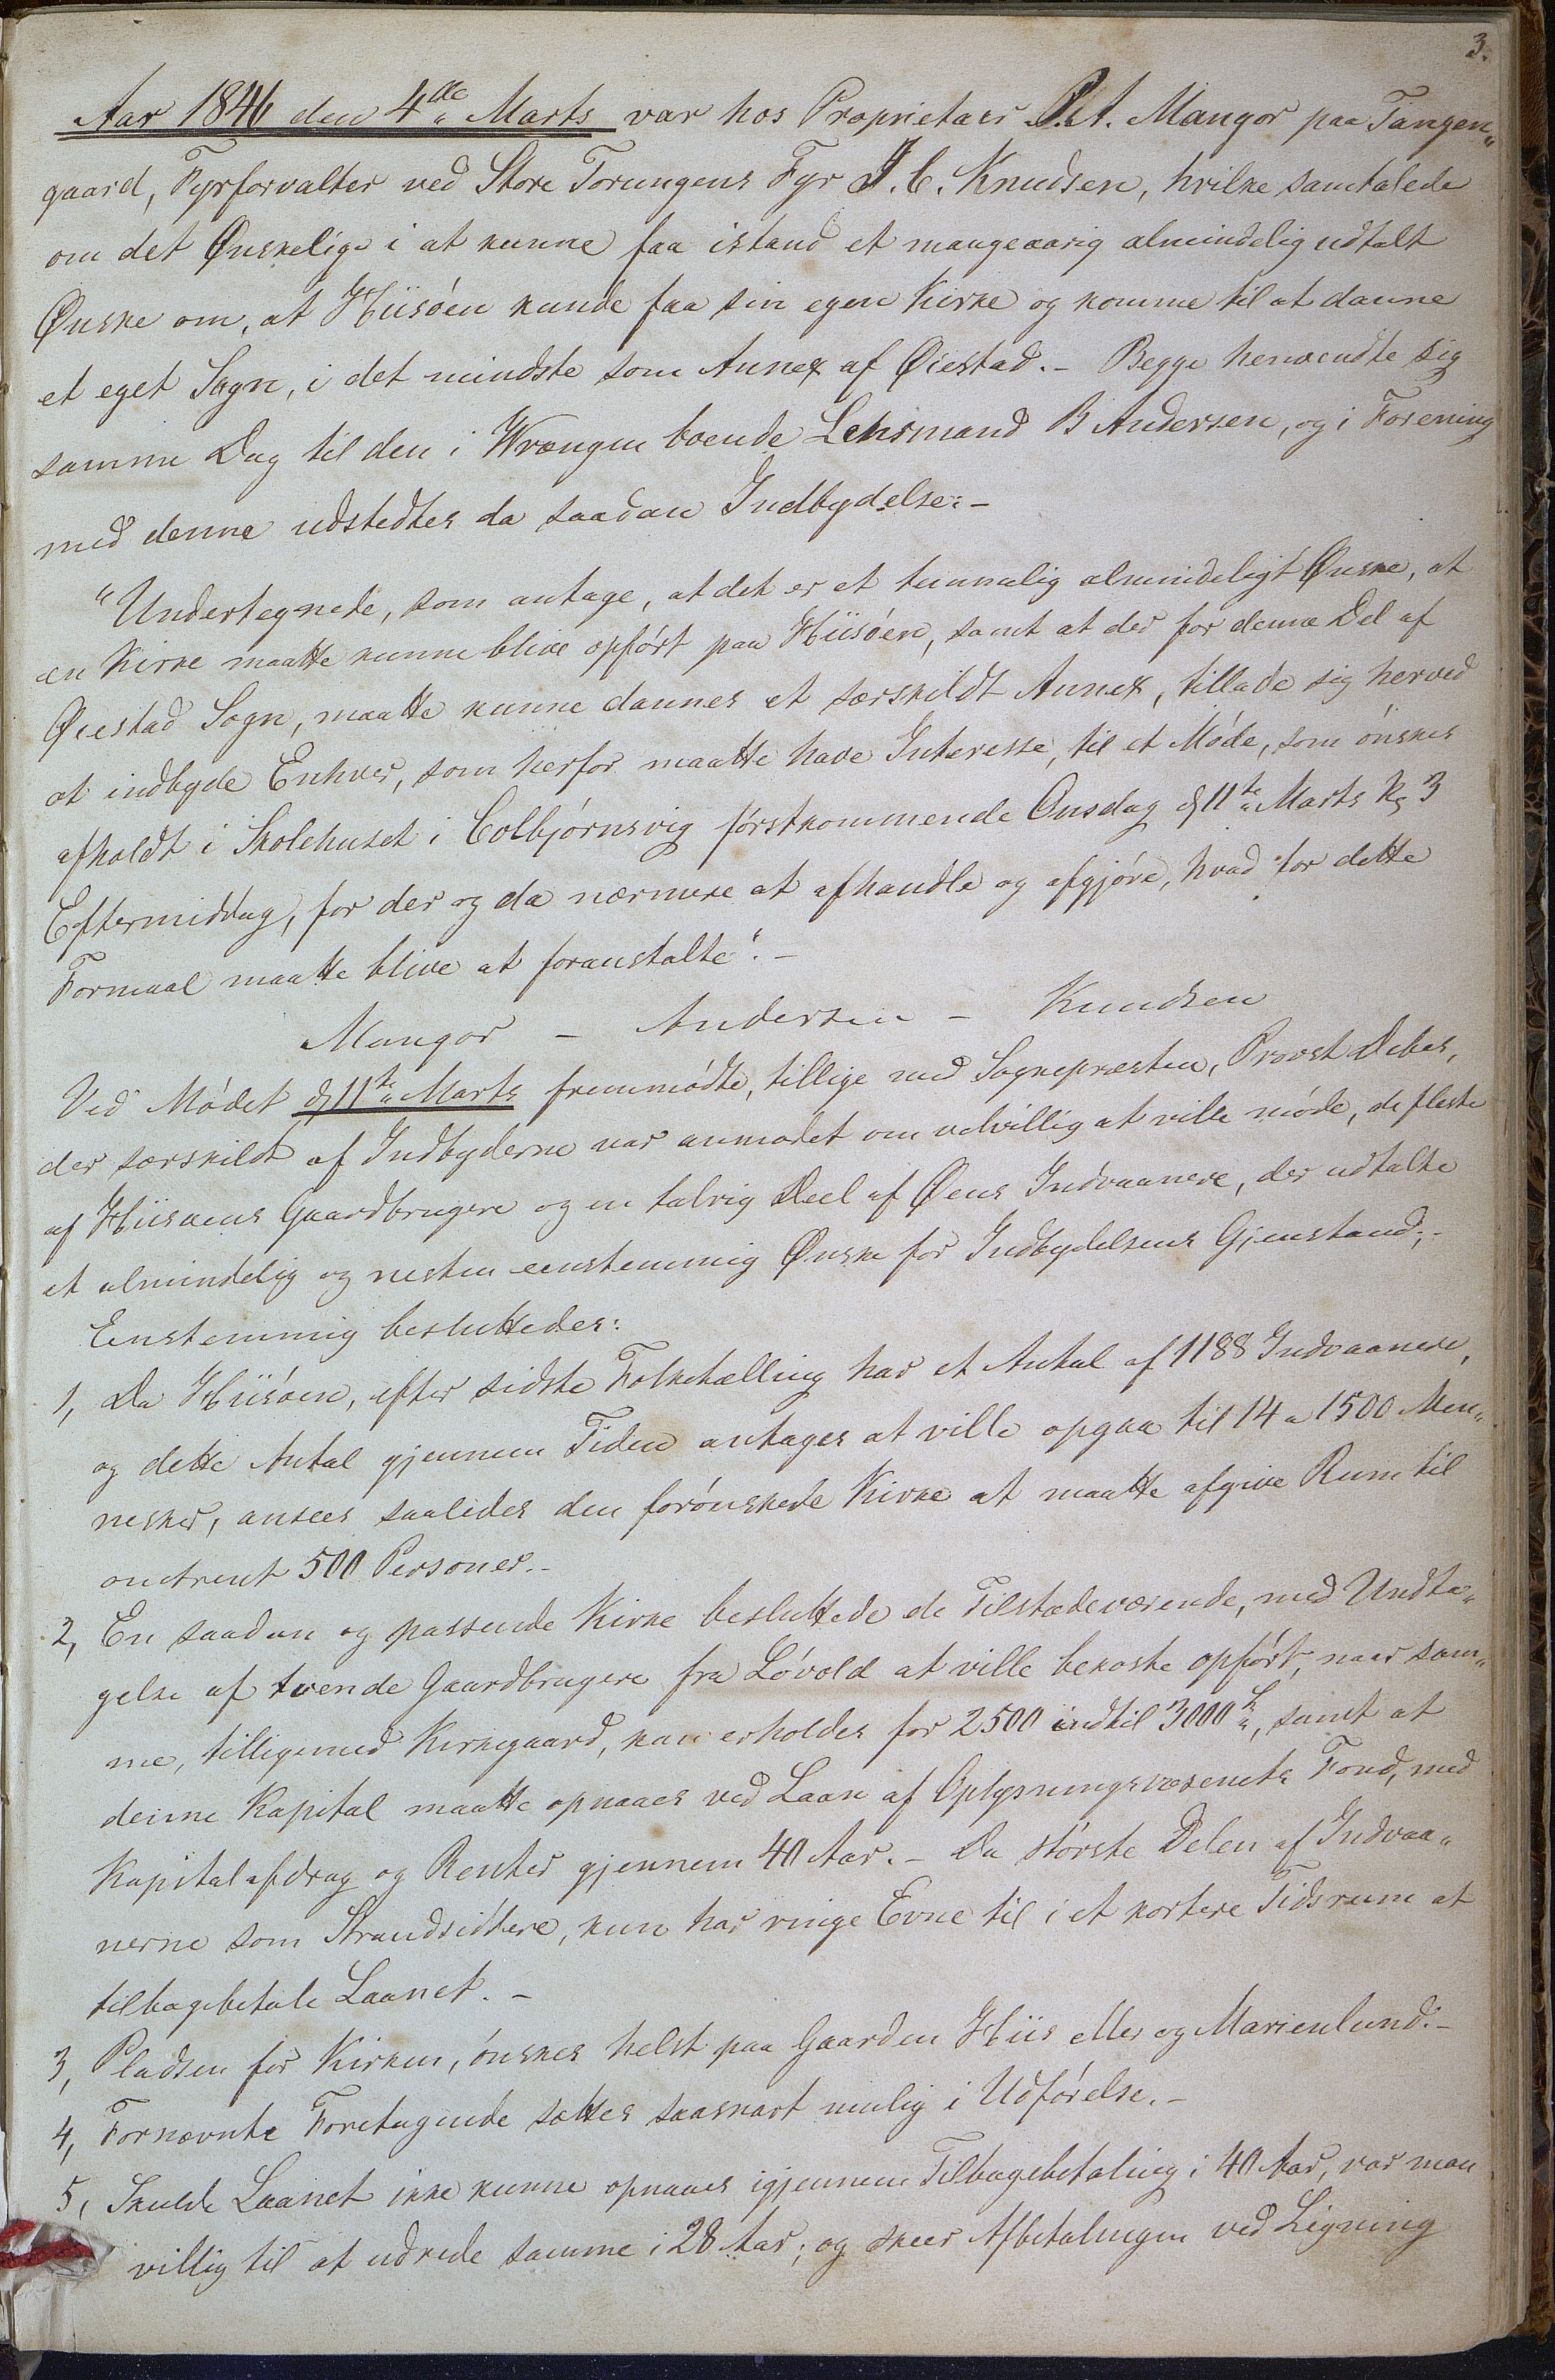 3.
Aar 1846 den 4de Marts var hos Proprietær P. A. Mangor paa Tangen„
gaard, Fyrforvalter ved Store Torungens Fyr J. C. Knudsen, hvilke samtalede
om det Ønskelige i at kunne faa istand et mangeaarig almindelig udtalt
Ønske om, at Hiisöen kunde faa sin egen Kirke og komme til at danne
et eget Sogn, i det mindste som Annex af Øiestad.- Begge henvendte sig
samme Dag til den i Wrængen boende Lehnsmand B Andersen, og i Forening
med denne udstedtes da saadan Indbydelse:-
"Undertegnede, som antage, at det er et temmelig almindeligt Ønske, at
en Kirke maatte kunne blive opfört paa Hiisöen, samt at der for denne Del af
Øiestad Sogn, maatte kunne dannes et særskildt Annex, tillade sig herved
at indbyde Enhver, som herfor maatte have Interesse, til et Möde, som önskes
afholdt i Skolehuset i Colbjörnsvig förstkommende Onsdag d 11te Marts Kl 3
Eftermiddag, for der og da nærmere at afhandle og afgjöre, hvad for dette
Formaal maatte blive at foranstalte".-
Mangor - Andersen - Knudsen
Ved Mödet d 11te Marts fremmödte, tillige med Sognepræsten, Provst Debes,
der særskildt af Indbyderne var anmodet om velvillig at ville möde, de fleste
af Hiisøens Gaardbrugere og en talrig Deel af Øens Indvaanere, der udtalte
et almindelig og næsten eenstemmig Ønske for Indbydelsens Gjenstand;-
Eenstemmig besluttedes:
1, Da Hiisöen, efter sidste Folketælling har et Antal af 1188 Indvaanere,
og dette Antal gjennem Tiden antages at ville opgaa til 14 a 1500 Men„
nesker, ansees saaledes den forönskede Kirke at maatte afgive Rum til
omtrent 500 Personer.-
2, En saadan og passende Kirke besluttede de Tilstædeværende, med Undta„
gelse af tvende Gaardbrugere fra Lövold at ville bekoste opfört, naar sam„
me, tilligemed Kirkegaard, kan erholdes for 2500 indtil 3000, samt at
denne Kapital maatte opnaaes ved Laan af Oplysningsvæsenets Fond, med
Kapitalafdrag og Renter gjennem 40 Aar.- Da störste Delen af Indvaa„
nerne som Strandsiddere, kun har ringe Evne til i et kortere Tidsrum at
tilbagebetale Laanet.-
3, Pladsen for Kirken, önskes helst paa Gaarden Hiis eller og Marienlund.-
4, Fornævnte Foretagende sættes saasnart mulig i Udförelse.-
5, Skulde Laanet ikke kunne opnaaes igjennem Tilbagebetaling i 40 Aar, var man
villig til at udrede samme i 28 Aar; og skeer Afbetalingen ved Ligning